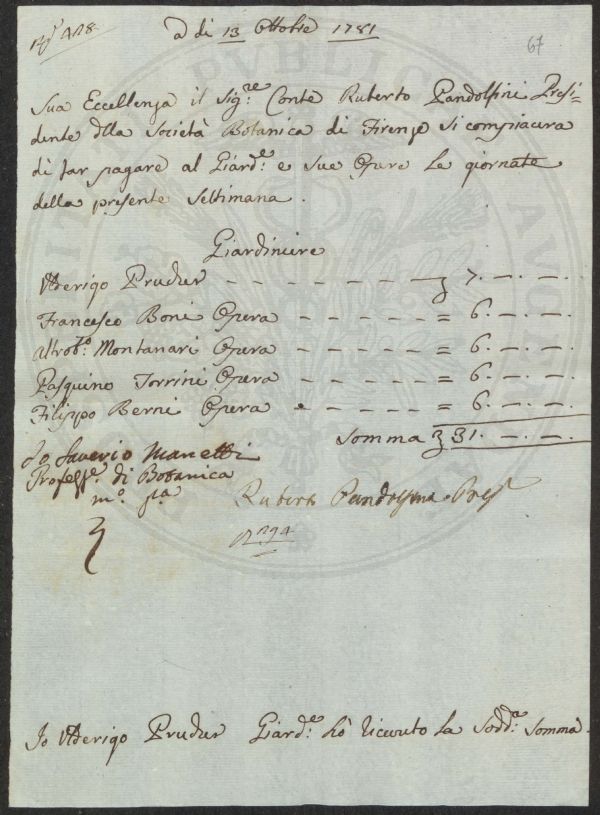 a dì 13 Ottobre 1781
67
Sua Eccellenza il Sig.re Conte Ruberto Pandolfini Presi-
dente dlla Società Botanica di Firenze si compiacera
di far pagare al Giard.e e sue Opere le giornate
della presente Settimana.
Giardiniere
Aderigo Prucker - - - - - - - 7. -. -.
Francesco Boni Opera - - - - - = 6. -. -.
Altro Montanari Opera - - - - - = 6. -. -.
Pasquino Torrini Opera - - - - - = 6. -. -.
Filippo Berni Opera - - - - - = 6. -. -.
Somma 31. -. -.
Io Saverio Manetti
Profess.e di Botanica
m.o p.a
Ruberto Pandolfini Pres
Io Aderigo Prucker Giard.e hò ricevuto la Sodd.a Somma.